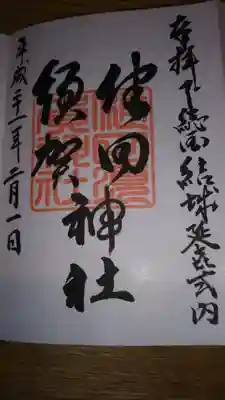 奉拝下総国結城延喜式内
健田
須賀
神社
平成二十一年二月一日